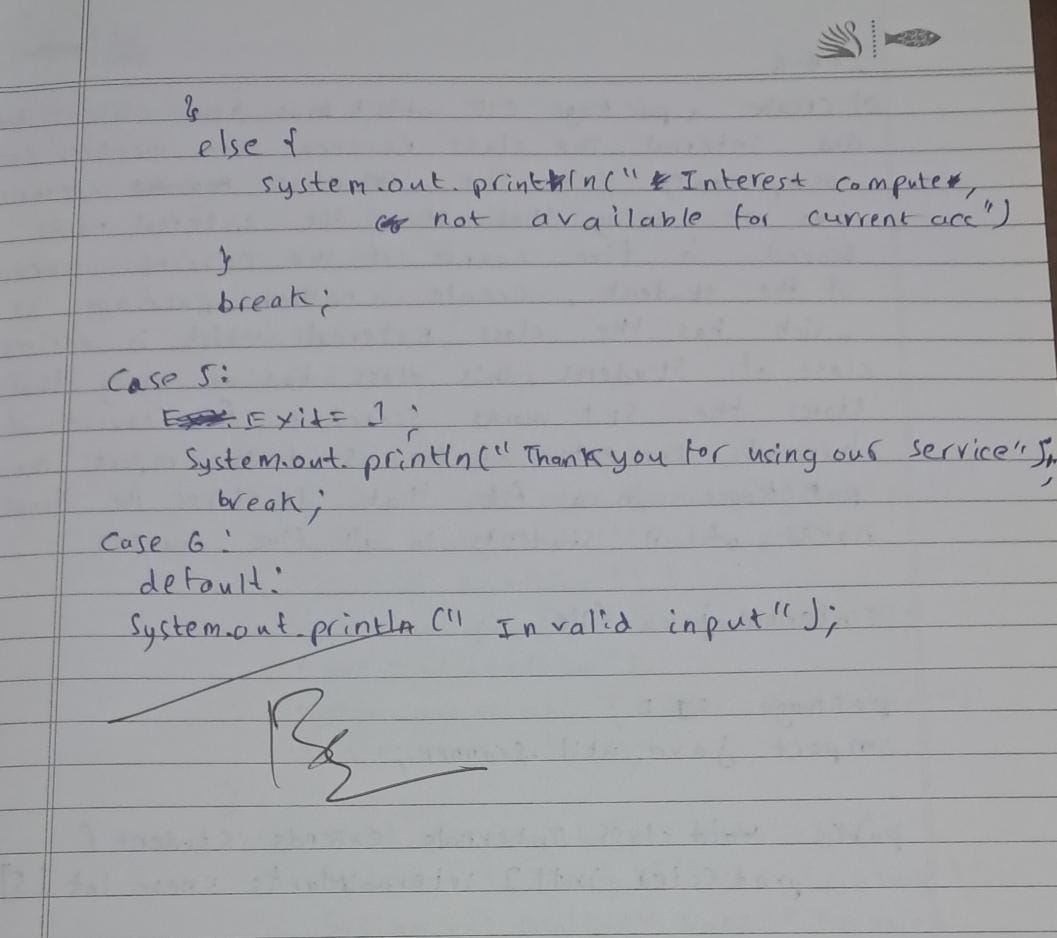 }
else {
system.out.println(" Interest compute,
not available for current acc")
}
break;
Case 5:
Exit= 1;
System.out.println(" Thank you for using our service");
break;
Case 6:
default:
System.out.println (" Invalid input");